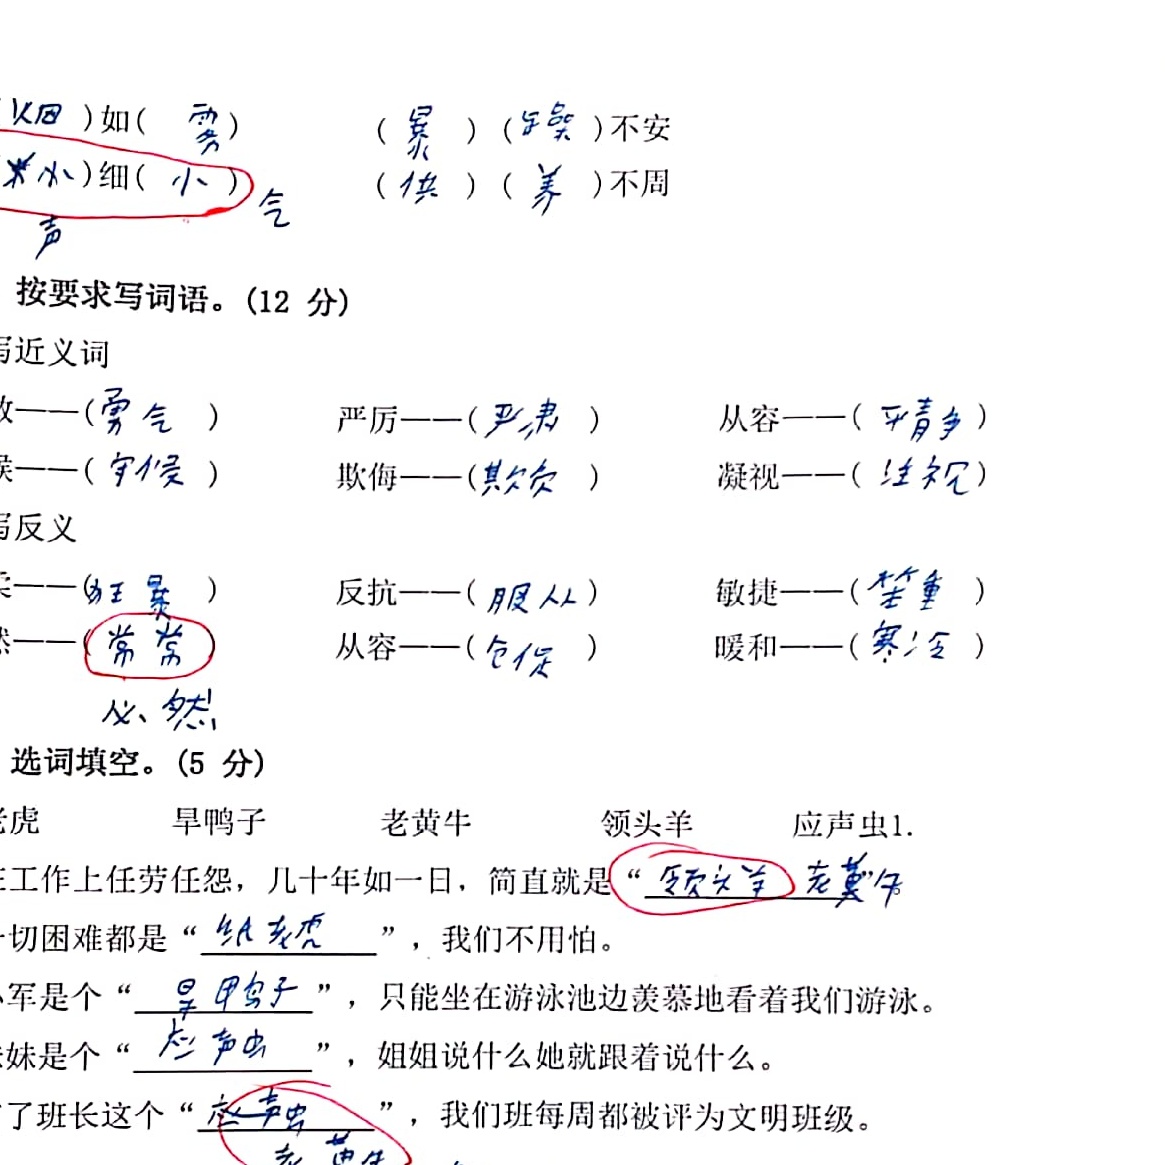 烟 )如( 雾 ) ( 暴 ) ( 躁 )不安
小 )细( 小 ) ( 供 ) ( 养 )不周
声 气
按要求写词语。(12 分)
写近义词
——(勇气 ) 严厉——(严肃 ) 从容——( )
候——(守候 ) 欺侮——(欺负 ) 凝视——( 注视)
写反义
柔——(狂暴 ) 反抗——( 服从) 敏捷——(笨重 )
然——( 常常 ) 从容——(仓促 ) 暖和——(寒冷 )
必然
选词填空。(5 分)
老虎 旱鸭子 老黄牛 领头羊 应声虫1.
在工作上任劳任怨，几十年如一日，简直就是“ 领头羊 老黄牛”
一切困难都是“ 纸老虎 ”，我们不用怕。
小军是个“ 旱鸭子 ”，只能坐在游泳池边羡慕地看着我们游泳。
妹妹是个“ 应声虫 ”，姐姐说什么她就跟着说什么。
有了班长这个“ 应声虫 ”，我们班每周都被评为文明班级。
老黄牛